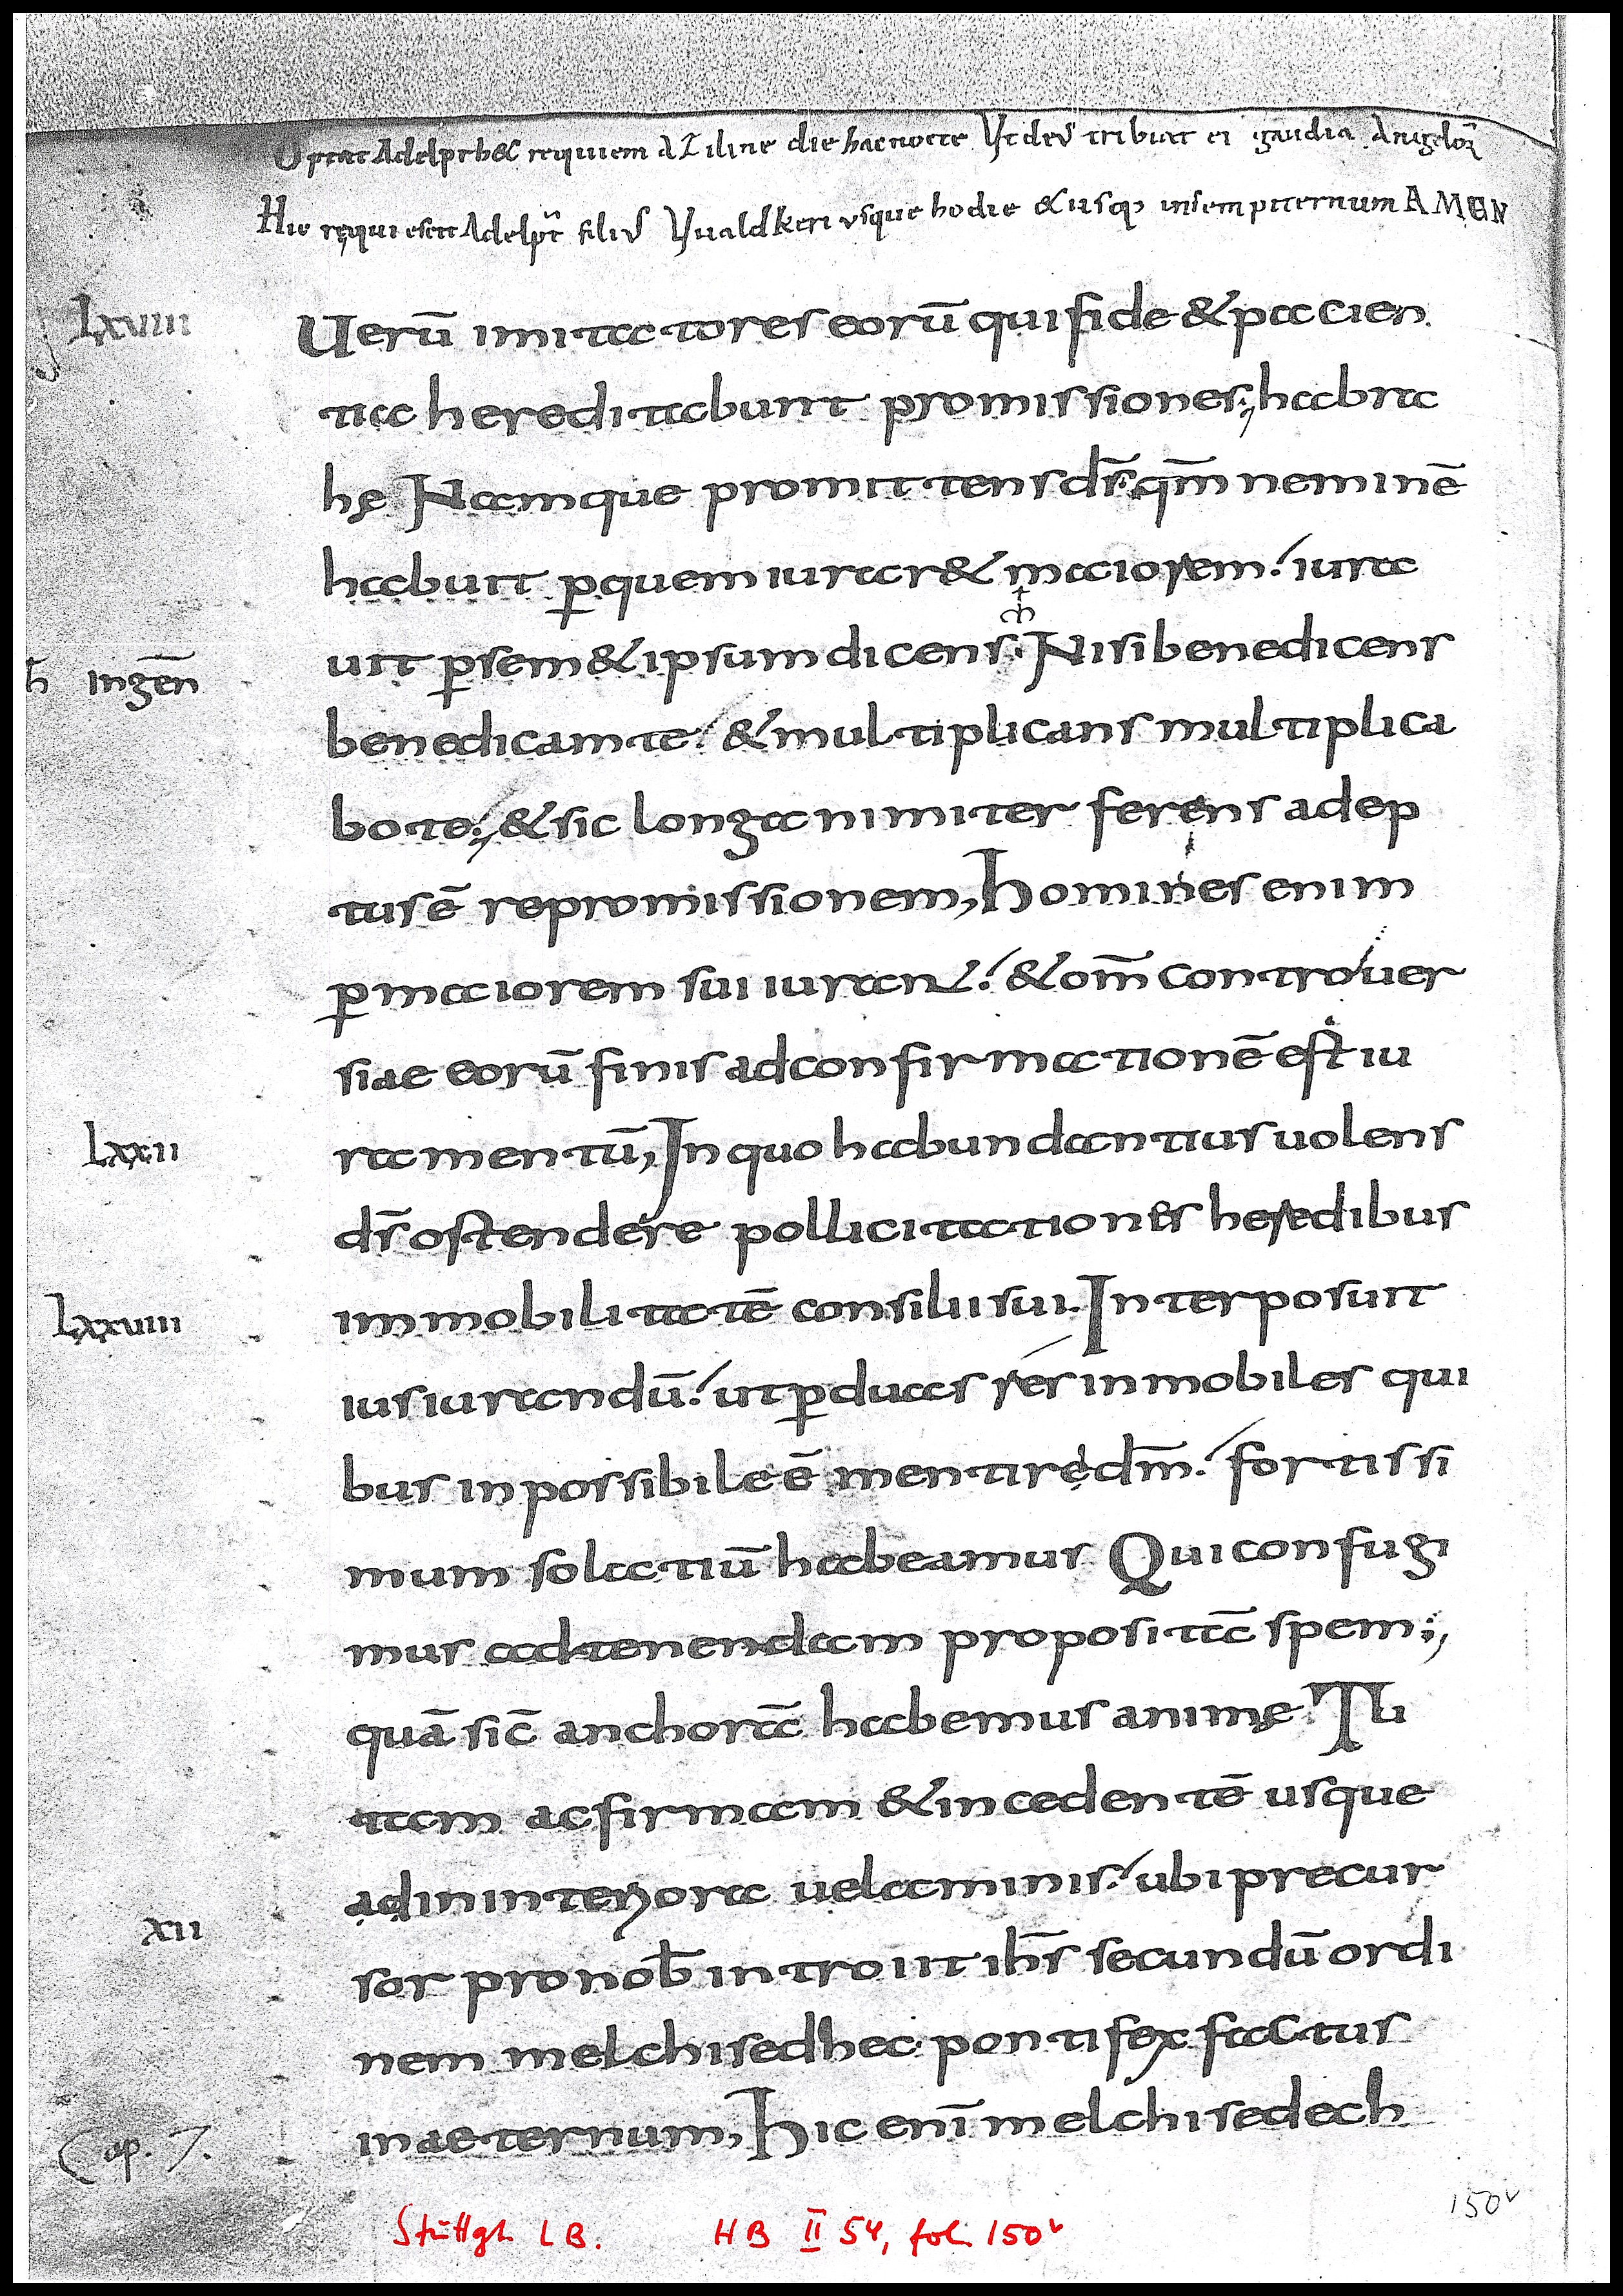 Optat Adelpt hec requiem a Ziline die hac nocte Vt deus tribuat ei gaudia Angelor̄
Hic requiescit Adelpt̄ filiꝰ Vualdkeri vsque hodie & usq; insempiternum AMEN
Lxviiii
Uerū imitatores eorū qui fide & pacien
tia hereditabunt promissiones; habra
hę Namque promittens d̄s qm̄ neminē
habuit ꝑquem iurar& maiorem. iura
h̄ ingēn
uit ꝑsem&ipsum dicens. Nisi benedicens
benedicam te. & multiplicans multiplica
bo te; & sic longanimiter ferens adep
tus ē repromissionem, Homines enim
ꝑ maiorem sui iurant. & om̄ controuer
siae eorū finis ad confirmationē est iu
Lxxii
ramentū, In quo habundantius uolens
d̄s ostendere pollicitationes heredibus
Lxxviii
immobilitatē consilii sui. Interposuit
iusiurandū. ut ꝑ duas res inmobiles qui
bus inpossibile ē mentirę dm̄. fortissi
mum solatiū habeamus Qui confugi
mus ad tenendam propositā spem;
quā sic̄ anchorā habemus animę. Tu
tam ac firmam & incedentē usque
ad in interiora uelaminis. ubi precur
xii
sor pro nob̄ introiit ih̄s secundū ordi
nem melchisedhec pontifex factus
in aeternum, Hic enī melchisedech
Cap. 7.
150v
Stuttgt LB. HB II 54, fol. 150v